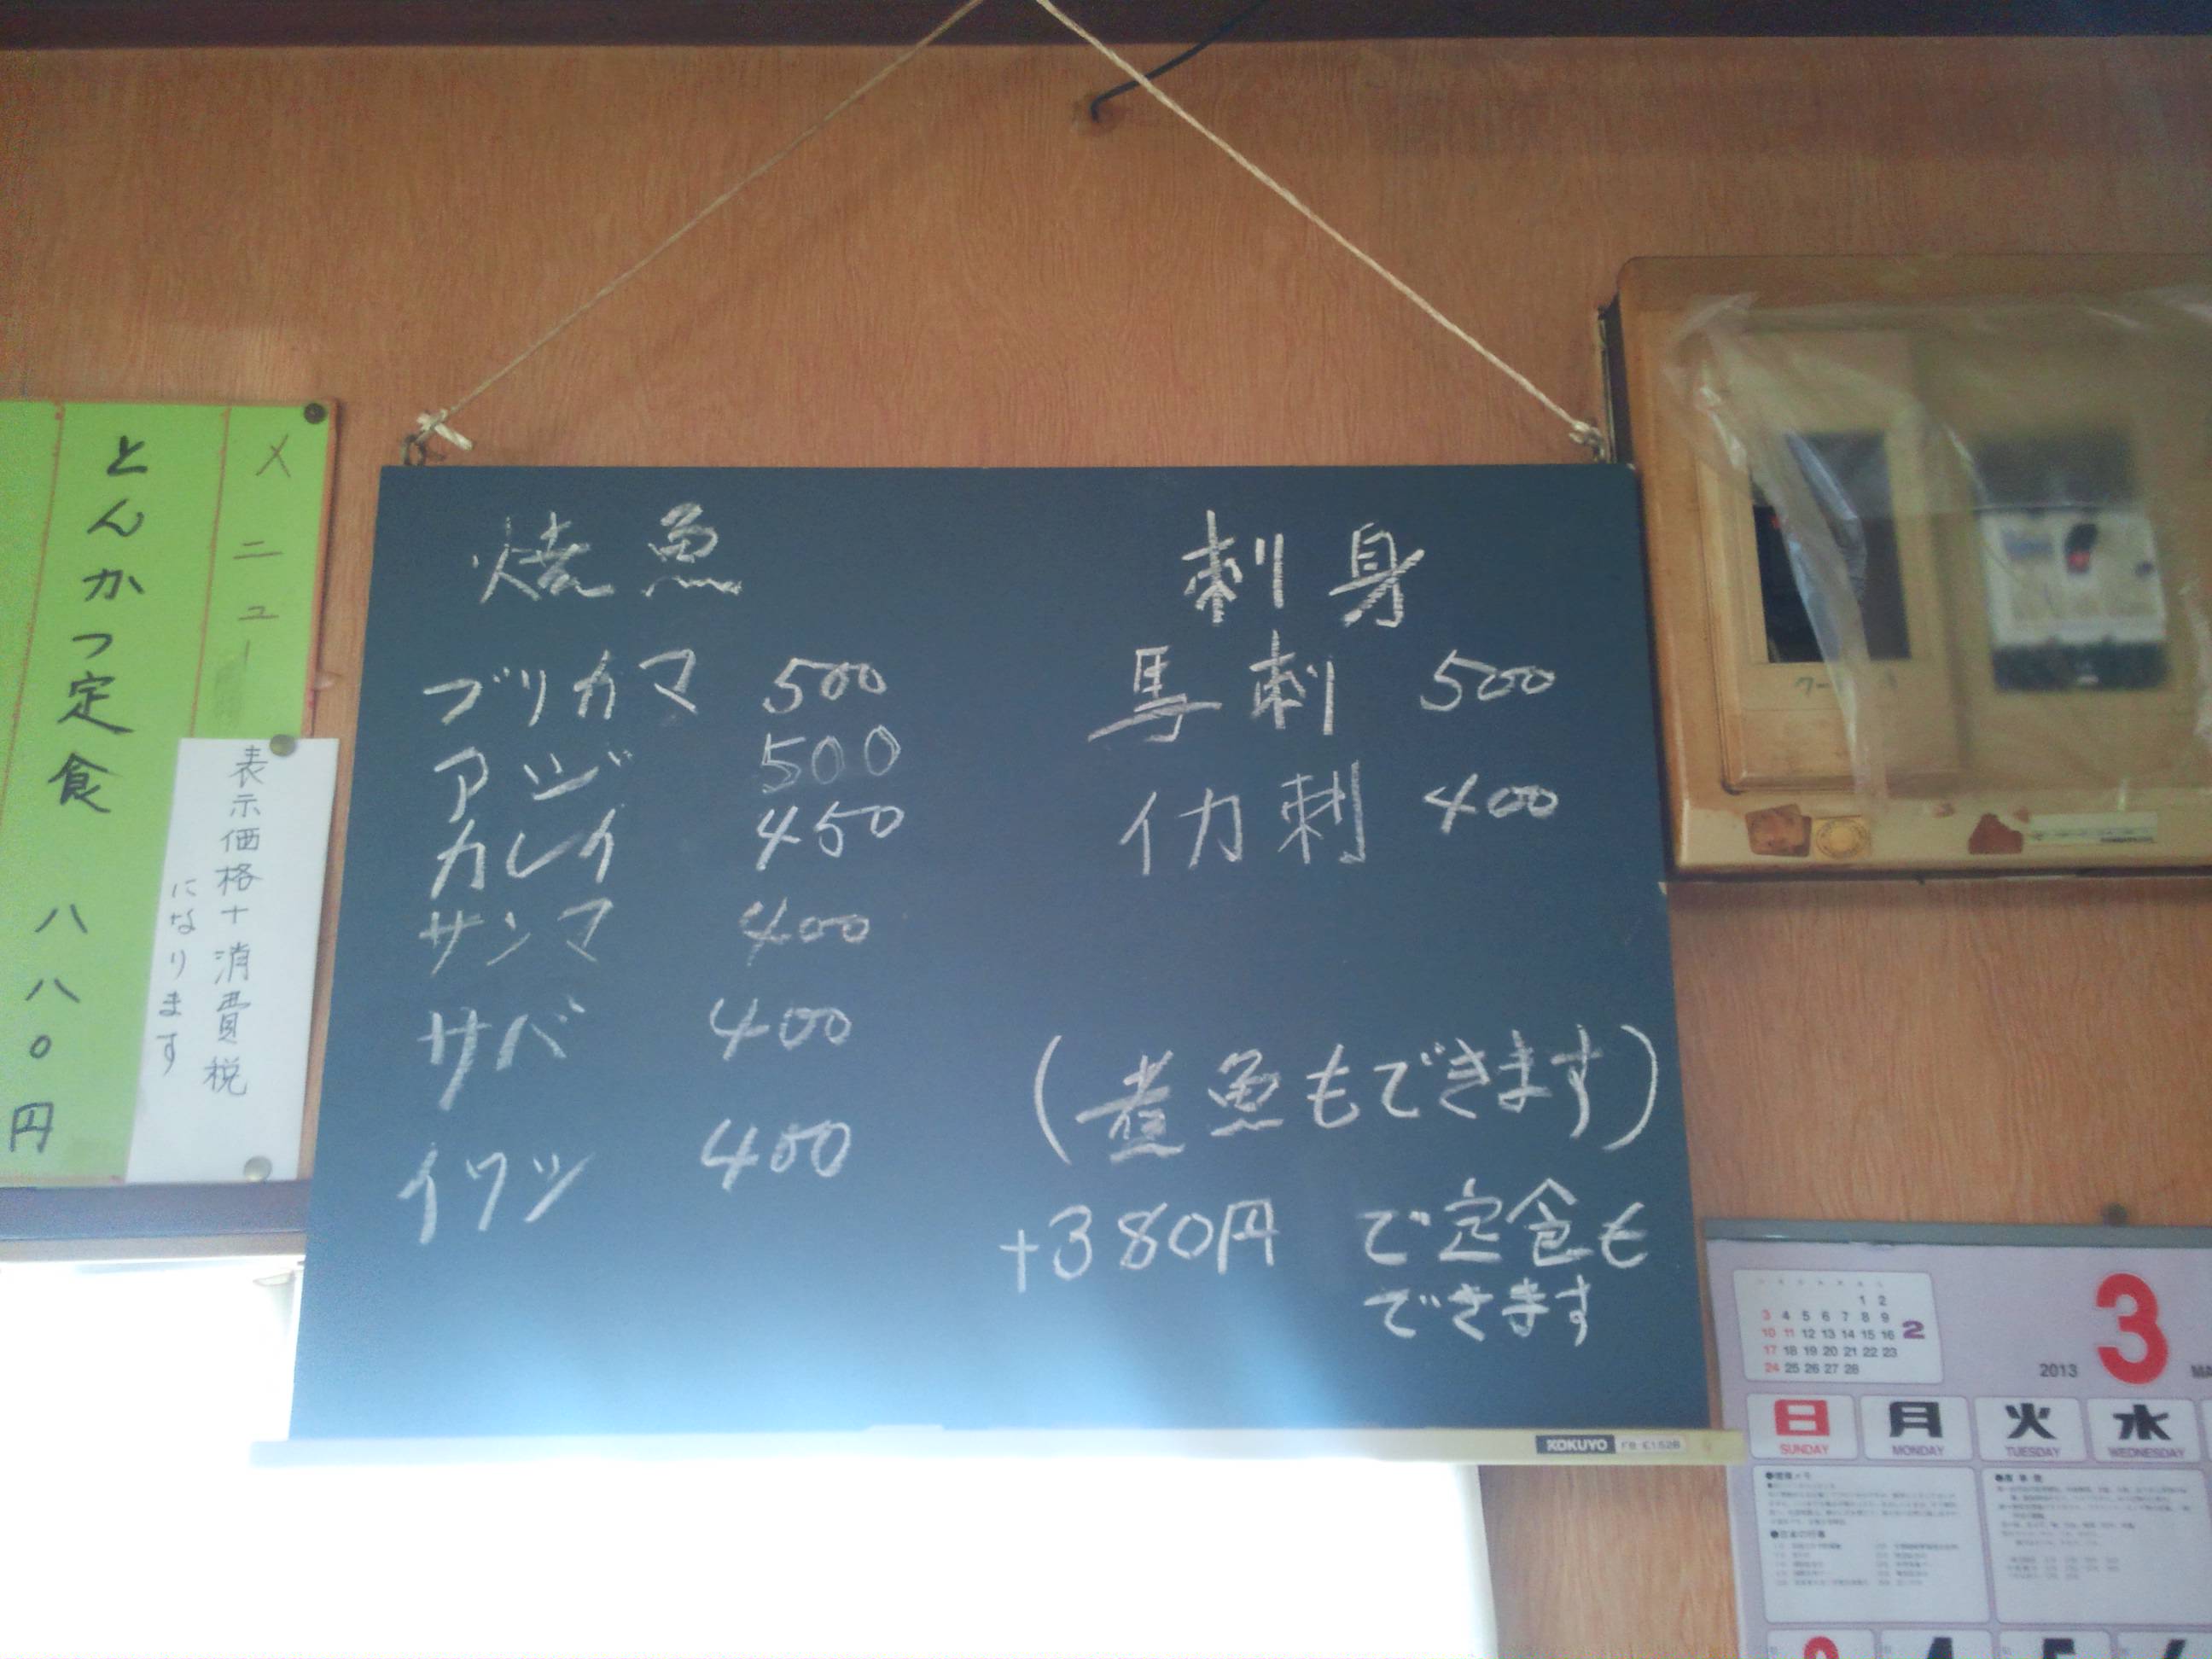 メニュー
とんかつ定食 八八〇円
表示価格+消費税
になります
焼魚
ブリカマ 500
アジ 500
カレイ 450
サンマ 400
サバ 400
イワシ 400
刺身
馬刺 500
イカ刺 400
(煮魚もできます)
+380円 で定食も
できます
KOKUYO FB-E152B
1 2
3 4 5 6 7 8 9
10 11 12 13 14 15 16
17 18 19 20 21 22 23
24 25 26 27 28
2
2013 3 MA
日 月 火 水
SUNDAY MONDAY TUESDAY WEDNESDAY